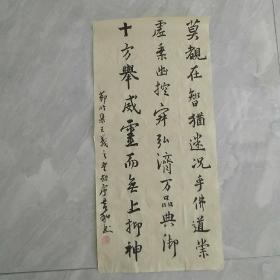 莫覩在智猶迷況乎佛道崇
虛乘幽控寂弘濟万品典御
十方舉威靈而無上抑神
節臨集王羲之聖教序